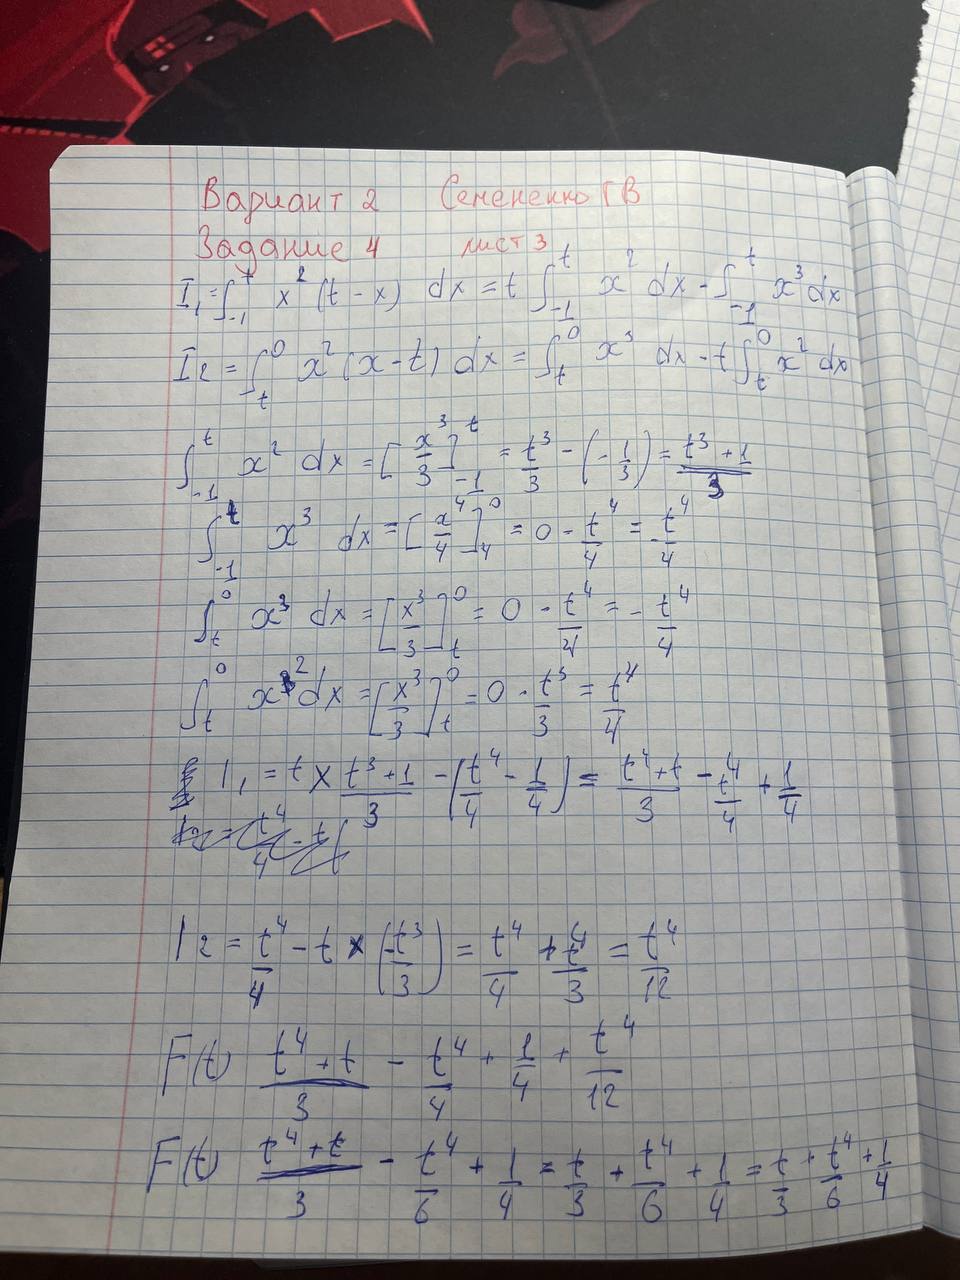 Вариант 2 Семененко ГВ
Задание 4 лист 3
I₁ = ∫₋₁ᵗ x² (t - x) dx = t ∫₋₁ᵗ x² dx - ∫₋₁ᵗ x³ dx
I₂ = ∫ₜ⁰ x² (x - t) dx = ∫ₜ⁰ x³ dx - t ∫ₜ⁰ x² dx
∫₋₁ᵗ x² dx = [x³/3]₋₁ᵗ = t³/3 - (-1/3) = (t³ + 1)/3
∫₋₁ᵗ x³ dx = [x⁴/4]₄⁰ = 0 - t⁴/4 = -t⁴/4
∫ₜ⁰ x³ dx = [x³/3]ₜ⁰ = 0 - t⁴/4 = - t⁴/4
∫ₜ⁰ x² dx = [x³/3]ₜ⁰ = 0 - t³/3 = t⁴/4
I₁ = t × (t³ + 1)/3 - (t⁴/4 - 1/4) = (t⁴ + t)/3 - t⁴/4 + 1/4
I₂ = t⁴/4 - t × (-t³/3) = t⁴/4 + t⁴/3 = t⁴/12
F(t) (t⁴ + t)/3 - t⁴/4 + 1/4 + t⁴/12
F(t) (t⁴ + t)/3 - t⁴/6 + 1/4 = t/3 + t⁴/6 + 1/4 = t/3 + t⁴/6 + 1/4